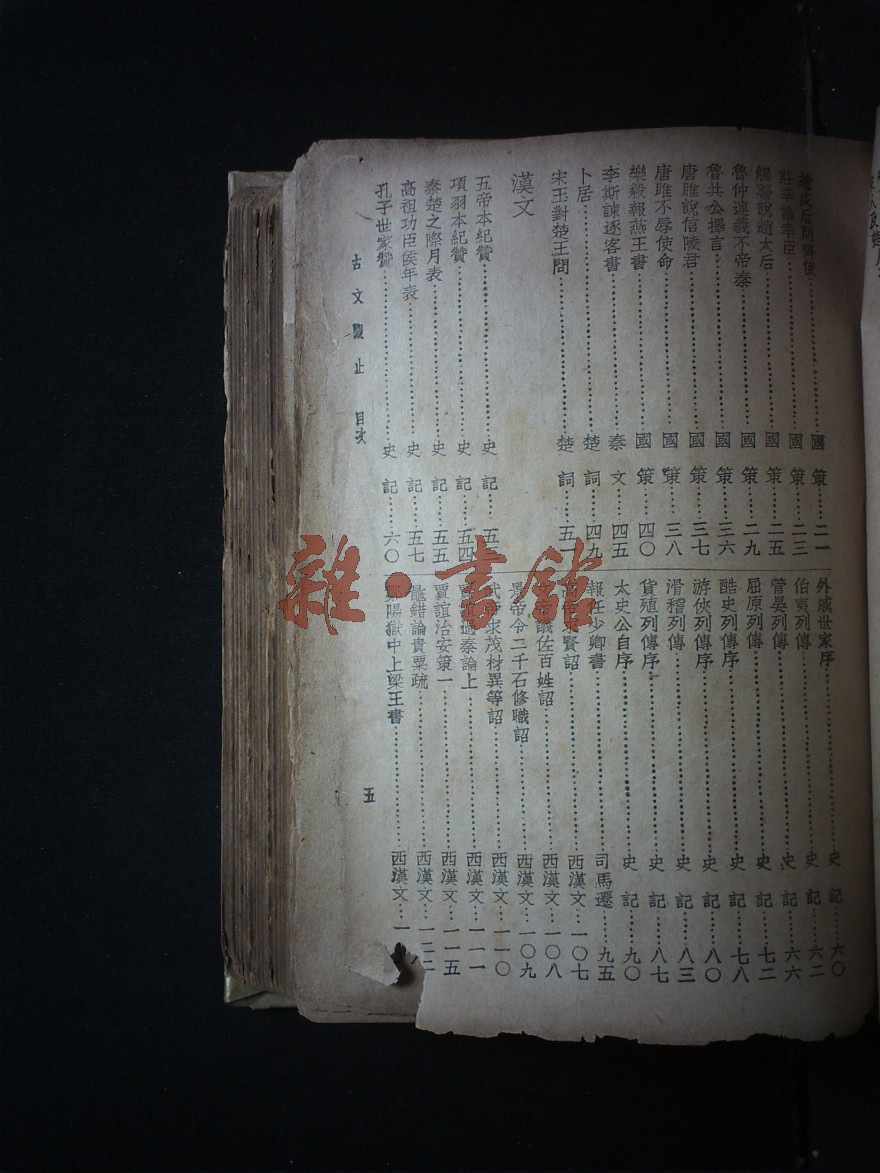 趙威后問齊使⋯⋯國策⋯⋯二一
莊辛論幸臣⋯⋯國策⋯⋯二三
觸讋說趙太后⋯⋯國策⋯⋯二五
魯仲連義不帝秦⋯⋯國策⋯⋯二九
魯共公擇言⋯⋯國策⋯⋯三六
唐雎說信陵君⋯⋯國策⋯⋯三七
唐雎不辱使命⋯⋯國策⋯⋯三八
樂毅報燕王書⋯⋯國策⋯⋯四〇
李斯諫逐客書⋯⋯秦文⋯⋯四五
卜居⋯⋯楚詞⋯⋯四九
宋玉對楚王問⋯⋯楚詞⋯⋯五一
漢文
五帝本紀贊⋯⋯史記⋯⋯五
項羽本紀贊⋯⋯史記⋯⋯五四
秦楚之際月表⋯⋯史記⋯⋯五五
高祖功臣侯年表⋯⋯史記⋯⋯五七
孔子世家贊⋯⋯史記⋯⋯六〇
外戚世家序⋯⋯史記⋯⋯六〇
伯夷列傳⋯⋯史記⋯⋯六二
管晏列傳⋯⋯史記⋯⋯六六
屈原列傳⋯⋯史記⋯⋯七二
酷史列傳序⋯⋯史記⋯⋯七八
游俠列傳序⋯⋯史記⋯⋯八〇
滑稽列傳⋯⋯史記⋯⋯八三
貨殖列傳序⋯⋯史記⋯⋯八七
太史公自序⋯⋯史記⋯⋯九〇
報任少卿書⋯⋯司馬遷⋯⋯九五
求賢詔⋯⋯西漢文⋯⋯一〇七
議佐百姓詔⋯⋯西漢文⋯⋯一〇八
景帝令二千石修職詔⋯⋯西漢文⋯⋯一〇九
武帝求茂材異等詔⋯⋯西漢文⋯⋯一一〇
過秦論上⋯⋯西漢文⋯⋯一一一
賈誼治安策一⋯⋯西漢文⋯⋯一一五
鼂錯論貴粟疏⋯⋯西漢文⋯⋯一二二
鄒陽獄中上梁王書⋯⋯西漢文⋯⋯一
古文觀止 目次
五
雜·書館